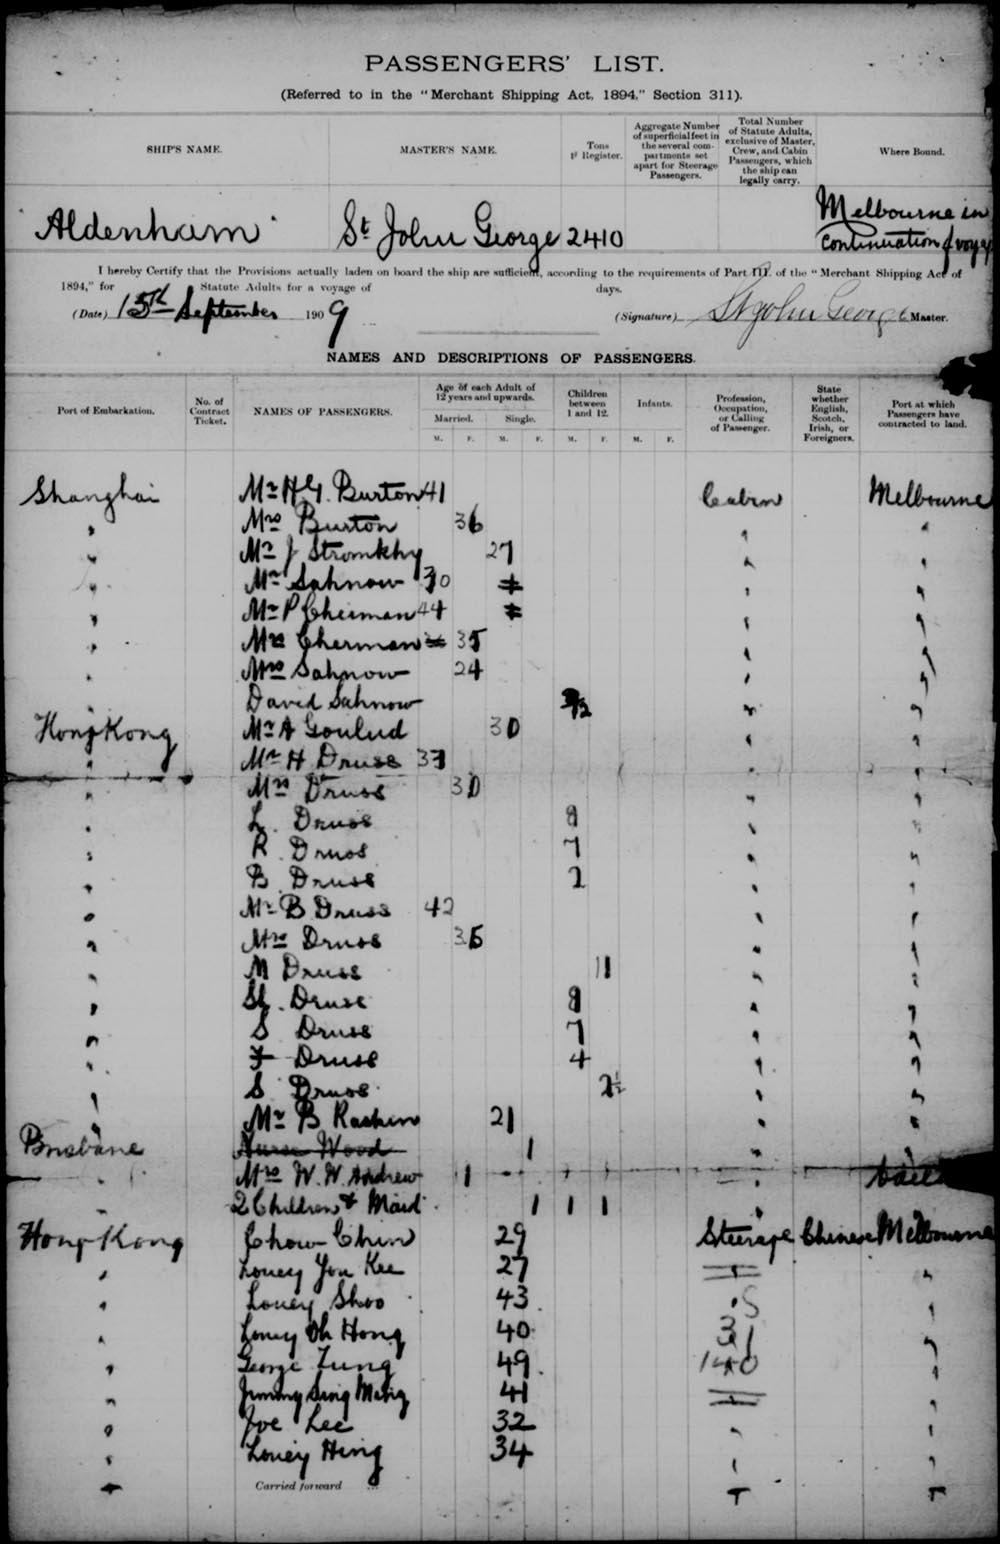 PASSENGERS' LIST.
(Referred to in the "Merchant Shipping Act, 1894," Section 311).
SHIP'S NAME. MASTER'S NAME. Tons Register. Aggregate Number of superficial feet in the several compartments set apart for Steerage Passengers. Total Number of Statute Adults, exclusive of Master, Crew, and Cabin Passengers, which the ship can legally carry. Where Bound.
Aldenham St John George 2410 Melbourne in continuation of voyage
I hereby Certify that the Provisions actually laden on board the ship are sufficient, according to the requirements of Part III. of the "Merchant Shipping Act of
1894," for Statute Adults for a voyage of days.
(Date) 15th September 1909 (Signature) St John George Master.
NAMES AND DESCRIPTIONS OF PASSENGERS.
Port of Embarkation. No. of Contract Ticket. NAMES OF PASSENGERS. Age of each Adult of 12 years and upwards. Children between 1 and 12. Infants. Profession, Occupation, or Calling of Passenger. State whether English, Scotch, Irish, or Foreigners. Port at which Passengers have contracted to land.
Married. Single.
M. F. M. F. M. F. M. F.
Shanghai Mr H.G. Burton 41 Cabin Melbourne
" Mrs Burton 36 " "
" Mr J 27 " "
" Mr Sahnow 30 " "
" Mr P Cherman 44 " "
" Mrs Cherman 35 " "
" Mrs Sahnow 24 " "
" David Sahnow " "
Hong Kong Mr A Goulud 30 " "
" Mr H Druss 37 " "
" Mrs Druss 30 " "
" L. Druss 9 " "
" R. Druss 7 " "
" B. Druss 2 " "
" Mr B Druss 42 " "
" Mrs Druss 35 " "
" M Druss 11 " "
" Druss 9 " "
" S Druss 7 " "
" F Druss 4 " "
" S Druss 2½ " "
" Mr B Raskin 21 " "
Brisbane Nurse Wood 1 " "
" Mrs W. W. Andrew 1 "
" 2 Children & Maid 1 1 1 "
Hong Kong Chow Chin 29 Steerage Chinese Melbourne
" Louey You Kee 27 "
" Louey Shoo 43 "
" Louey Oh Hong 40 "
" George Fung 49 140 "
" Jimmy Sing Mang 41 "
" Joe Lee 32 " "
" Louey Hing 34 " "
Carried forward ...